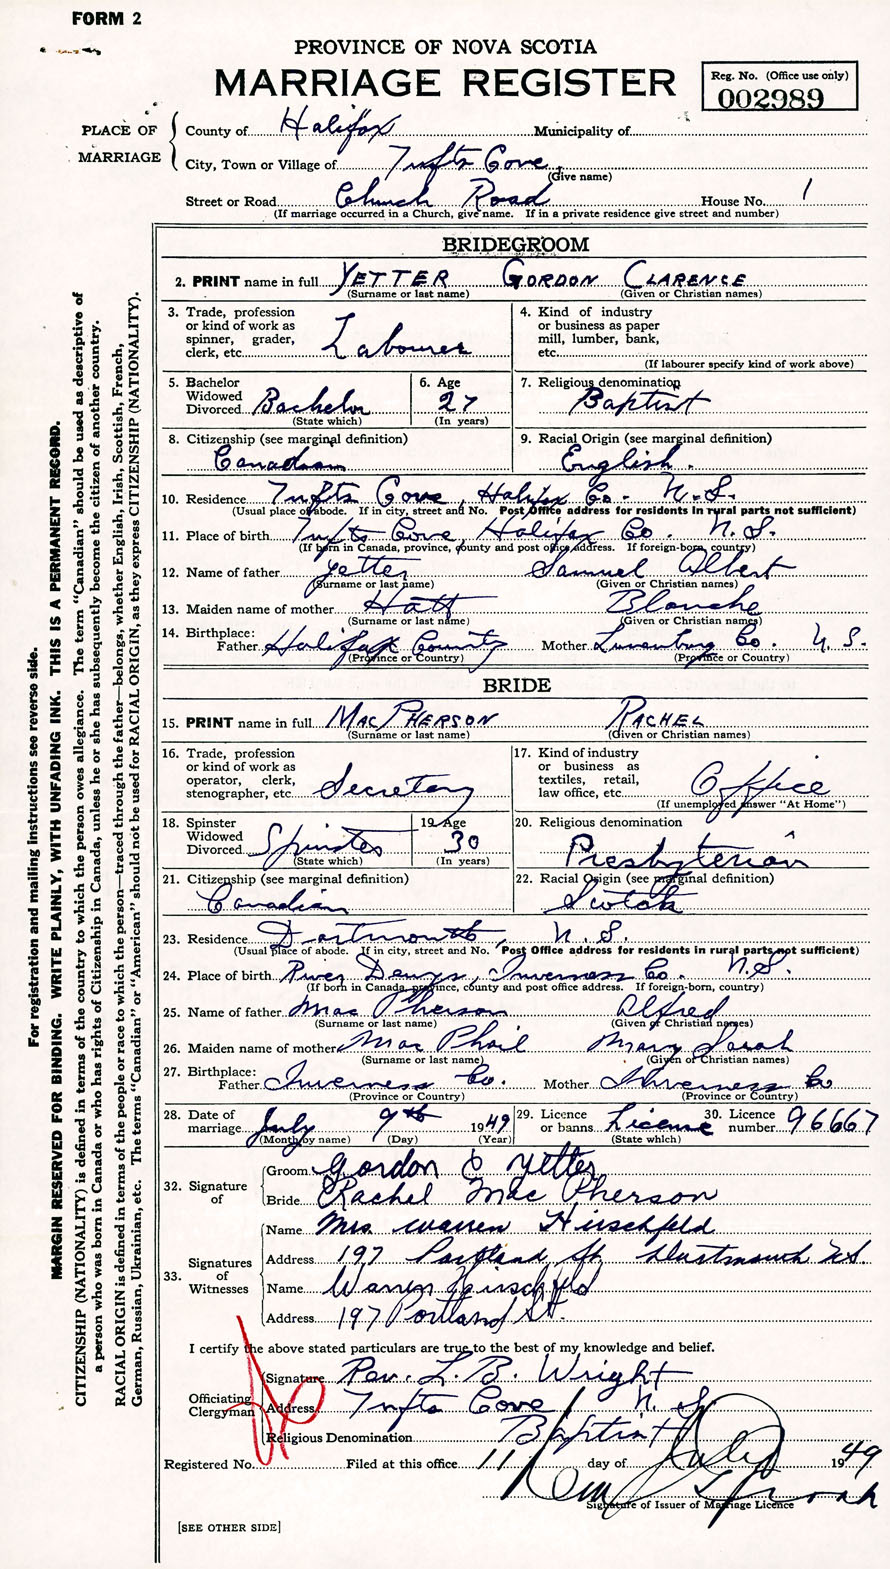 FORM 2
PROVINCE OF NOVA SCOTIA
MARRIAGE REGISTER
Reg. No. (Office use only)
002989
PLACE OF MARRIAGE
County of Halifax Municipality of
City, Town or Village of Tufts Cove
(Give name)
Street or Road Church Road House No. 1
(If marriage occurred in a Church, give name. If in a private residence give street and number)
BRIDEGROOM
2. PRINT name in full YETTER GORDON CLARENCE
(Surname or last name) (Given or Christian names)
3. Trade, profession or kind of work as spinner, grader, clerk, etc. Labourer
4. Kind of industry or business as paper mill, lumber, bank, etc.
(If labourer specify kind of work above)
5. Bachelor Widowed Divorced Bachelor
(State which)
6. Age 27
(In years)
7. Religious denomination Baptist
8. Citizenship (see marginal definition) Canadian
9. Racial Origin (see marginal definition) English.
10. Residence Tufts Cove, Halifax Co. N.S.
(Usual place of abode. If in city, street and No. Post Office address for residents in rural parts not sufficient)
11. Place of birth Tufts Cove, Halifax Co. N.S.
(If born in Canada, province, county and post office address. If foreign-born, country)
12. Name of father Yetter Samuel Albert
(Surname or last name) (Given or Christian names)
13. Maiden name of mother Hatt Blanche
(Surname or last name) (Given or Christian names)
14. Birthplace: Father Halifax County Mother Lunenburg Co. N.S.
(Province or Country) (Province or Country)
BRIDE
15. PRINT name in full MACPHERSON RACHEL
(Surname or last name) (Given or Christian names)
16. Trade, profession or kind of work as operator, clerk, stenographer, etc. Secretary
17. Kind of industry or business as textiles, retail, law office, etc. Office
(If unemployed answer "At Home")
18. Spinster Widowed Divorced Spinster
(State which)
19. Age 30
(In years)
20. Religious denomination Presbyterian
21. Citizenship (see marginal definition) Canadian
22. Racial Origin (see marginal definition) Scotch
23. Residence Dartmouth, N.S.
(Usual place of abode. If in city, street and No. Post Office address for residents in rural parts not sufficient)
24. Place of birth River Denys, Inverness Co. N.S.
(If born in Canada, province, county and post office address. If foreign-born, country)
25. Name of father MacPherson Alfred
(Surname or last name) (Given or Christian names)
26. Maiden name of mother MacPhail Mary Sarah
(Surname or last name) (Given or Christian names)
27. Birthplace: Father Inverness Co. Mother Inverness Co
(Province or Country) (Province or Country)
28. Date of marriage July 9th 1949
(Month by name) (Day) (Year)
29. Licence or banns License
(State which)
30. Licence number 96667
32. Signature of
Groom Gordon C Yetter
Bride Rachel MacPherson
33. Signatures of Witnesses
Name Mrs. Warren Hirschfeld
Address 197 Portland St. Dartmouth N.S.
Name Warren Hirschfeld
Address 197 Portland St.
I certify the above stated particulars are true to the best of my knowledge and belief.
Officiating Clergyman
Signature Rev. L. B. Wright
Address Tufts Cove N.S.
Religious Denomination Baptist
Registered No. Filed at this office 11 day of July 1949
Signature of Issuer of Marriage Licence
[SEE OTHER SIDE]
For registration and mailing instructions see reverse side.
MARGIN RESERVED FOR BINDING. WRITE PLAINLY, WITH UNFADING INK. THIS IS A PERMANENT RECORD.
CITIZENSHIP (NATIONALITY) is defined in terms of the country to which the person owes allegiance. The term "Canadian" should be used as descriptive of
a person who was born in Canada or who has rights of Citizenship in Canada, unless he or she has subsequently become the citizen of another country.
RACIAL ORIGIN is defined in terms of the people or race to which the person—traced through the father—belongs, whether English, Irish, Scottish, French,
German, Russian, Ukrainian, etc. The terms "Canadian" or "American" should not be used for RACIAL ORIGIN, as they express CITIZENSHIP (NATIONALITY).